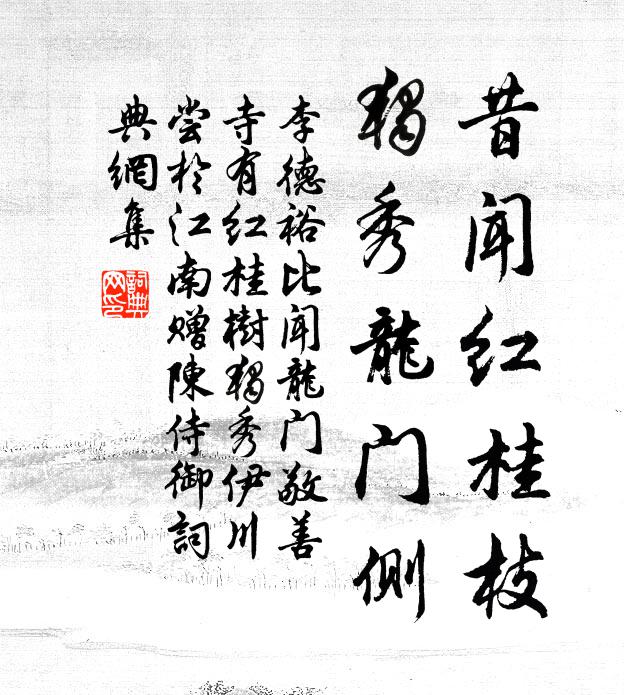 昔闻红桂枝
独秀龍门侧
李德裕比闻龍门敬善
寺有红桂樹独秀伊川
尝於江南赠陳侍御詞
典網集
詞典
网印